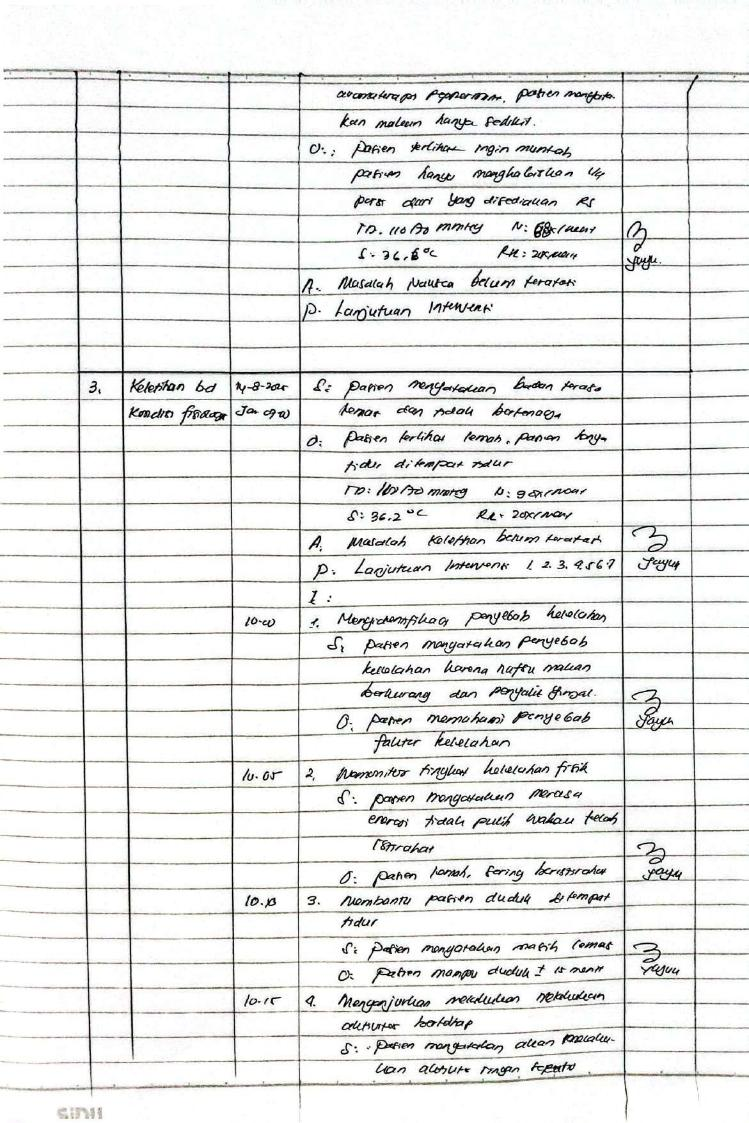 aromaterapi Peppermint, pasien mengata-
kan makan hanya sedikit.
O: pasien terlihat ingin muntah
pasien hanya menghabiskan 1/4
porsi dari yang disediakan RS
TD. 110/70 mmHg N: x/menit
S: 36,6°C RR: 20x/menit
yayu.
A. Masalah Nausea belum teratasi
P. Lanjutuan Intervensi
3. Keletihan bd 14-8-2025 S: pasien mengatakan badan terasa
Kondisi fisiologis Jam 09.00 lemas dan tidak bertenaga
O: pasien terlihat lemah, pasien hanya
tidur ditempat tidur
TD: 110/70 mmHg N: 90x/menit
S: 36.2 °C RR: 20x/menit
A. Masalah Keletihan belum teratasi
P. Lanjutuan Intervensi 1. 2. 3. 4. 5 6 7 yayu
I :
10.00 1. Mengidentifikasi penyebab kelelahan
S: pasien mengatakan penyebab
kelelahan karena nafsu makan
berkurang dan penyakit ginjal.
O: pasien memahami penyebab yayu
faktor kelelahan
10.05 2. Memonitor tingkat kelelahan fisik
S: pasien mengatakan merasa
energi tidak pulih walau telah
istirahat
O: pasien lemah, sering beristirahat yayu
10.10 3. Membantu pasien duduk ditempat
tidur
S: pasien mengatakan masih lemas
O: pasien mampu duduk ± 15 menit yayu
10.15 4. Menganjurkan melakukan melakukan
aktivitas bertahap
S: pasien mengatakan akan melaku-
kan aktivitas ringan